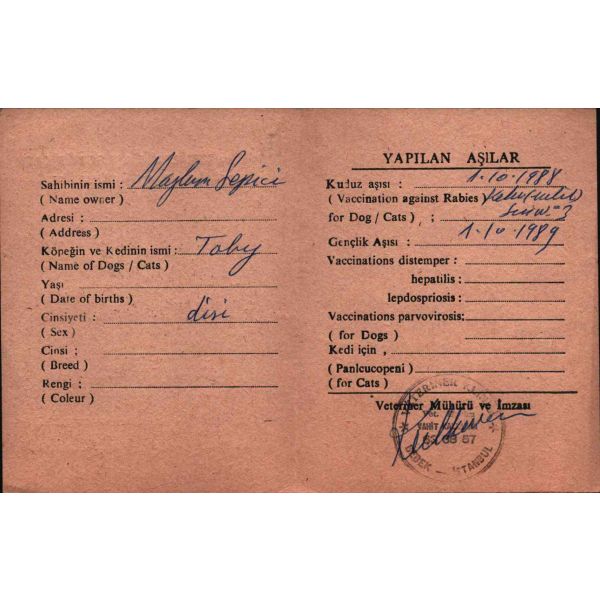 Sahibinin ismi :
( Name owner )
Adresi :
( Address )
Köpeğin ve Kedinin ismi : Toby
( Name of Dogs / Cats )
Yaşı
( Date of births )
Cinsiyeti : disi
( Sex )
Cinsi :
( Breed )
Rengi :
( Coleur )
YAPILAN AŞILAR
Kuduz aşısı : 1.10.1988
( Vaccination against Rabies
for Dog / Cats ) :
Gençlik Aşısı : 1.10.1989
Vaccinations distemper :
hepatilis :
lepdospriosis :
Vaccinations parvovirosis:
( for Dogs )
Kedi için ,
( Panleucopeni )
( for Cats )
Veteriner Mühürü ve İmzası
VETERİNER
Vet.
VAHİT
63 68 57
BEBEK - İSTANBUL